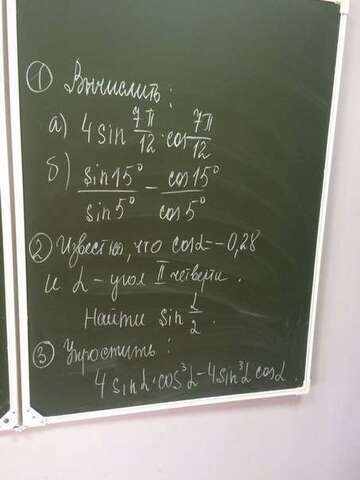 ① Вычислить:
а) 4 sin 7π/12 · cos 7π/12
б) sin15°/sin5° − cos15°/cos5°
② Известно, что cosα=−0,28
и α – угол II четверти.
Найти sin α/2.
③ Упростить:
4 sinα·cos³α−4sin³α cosα.